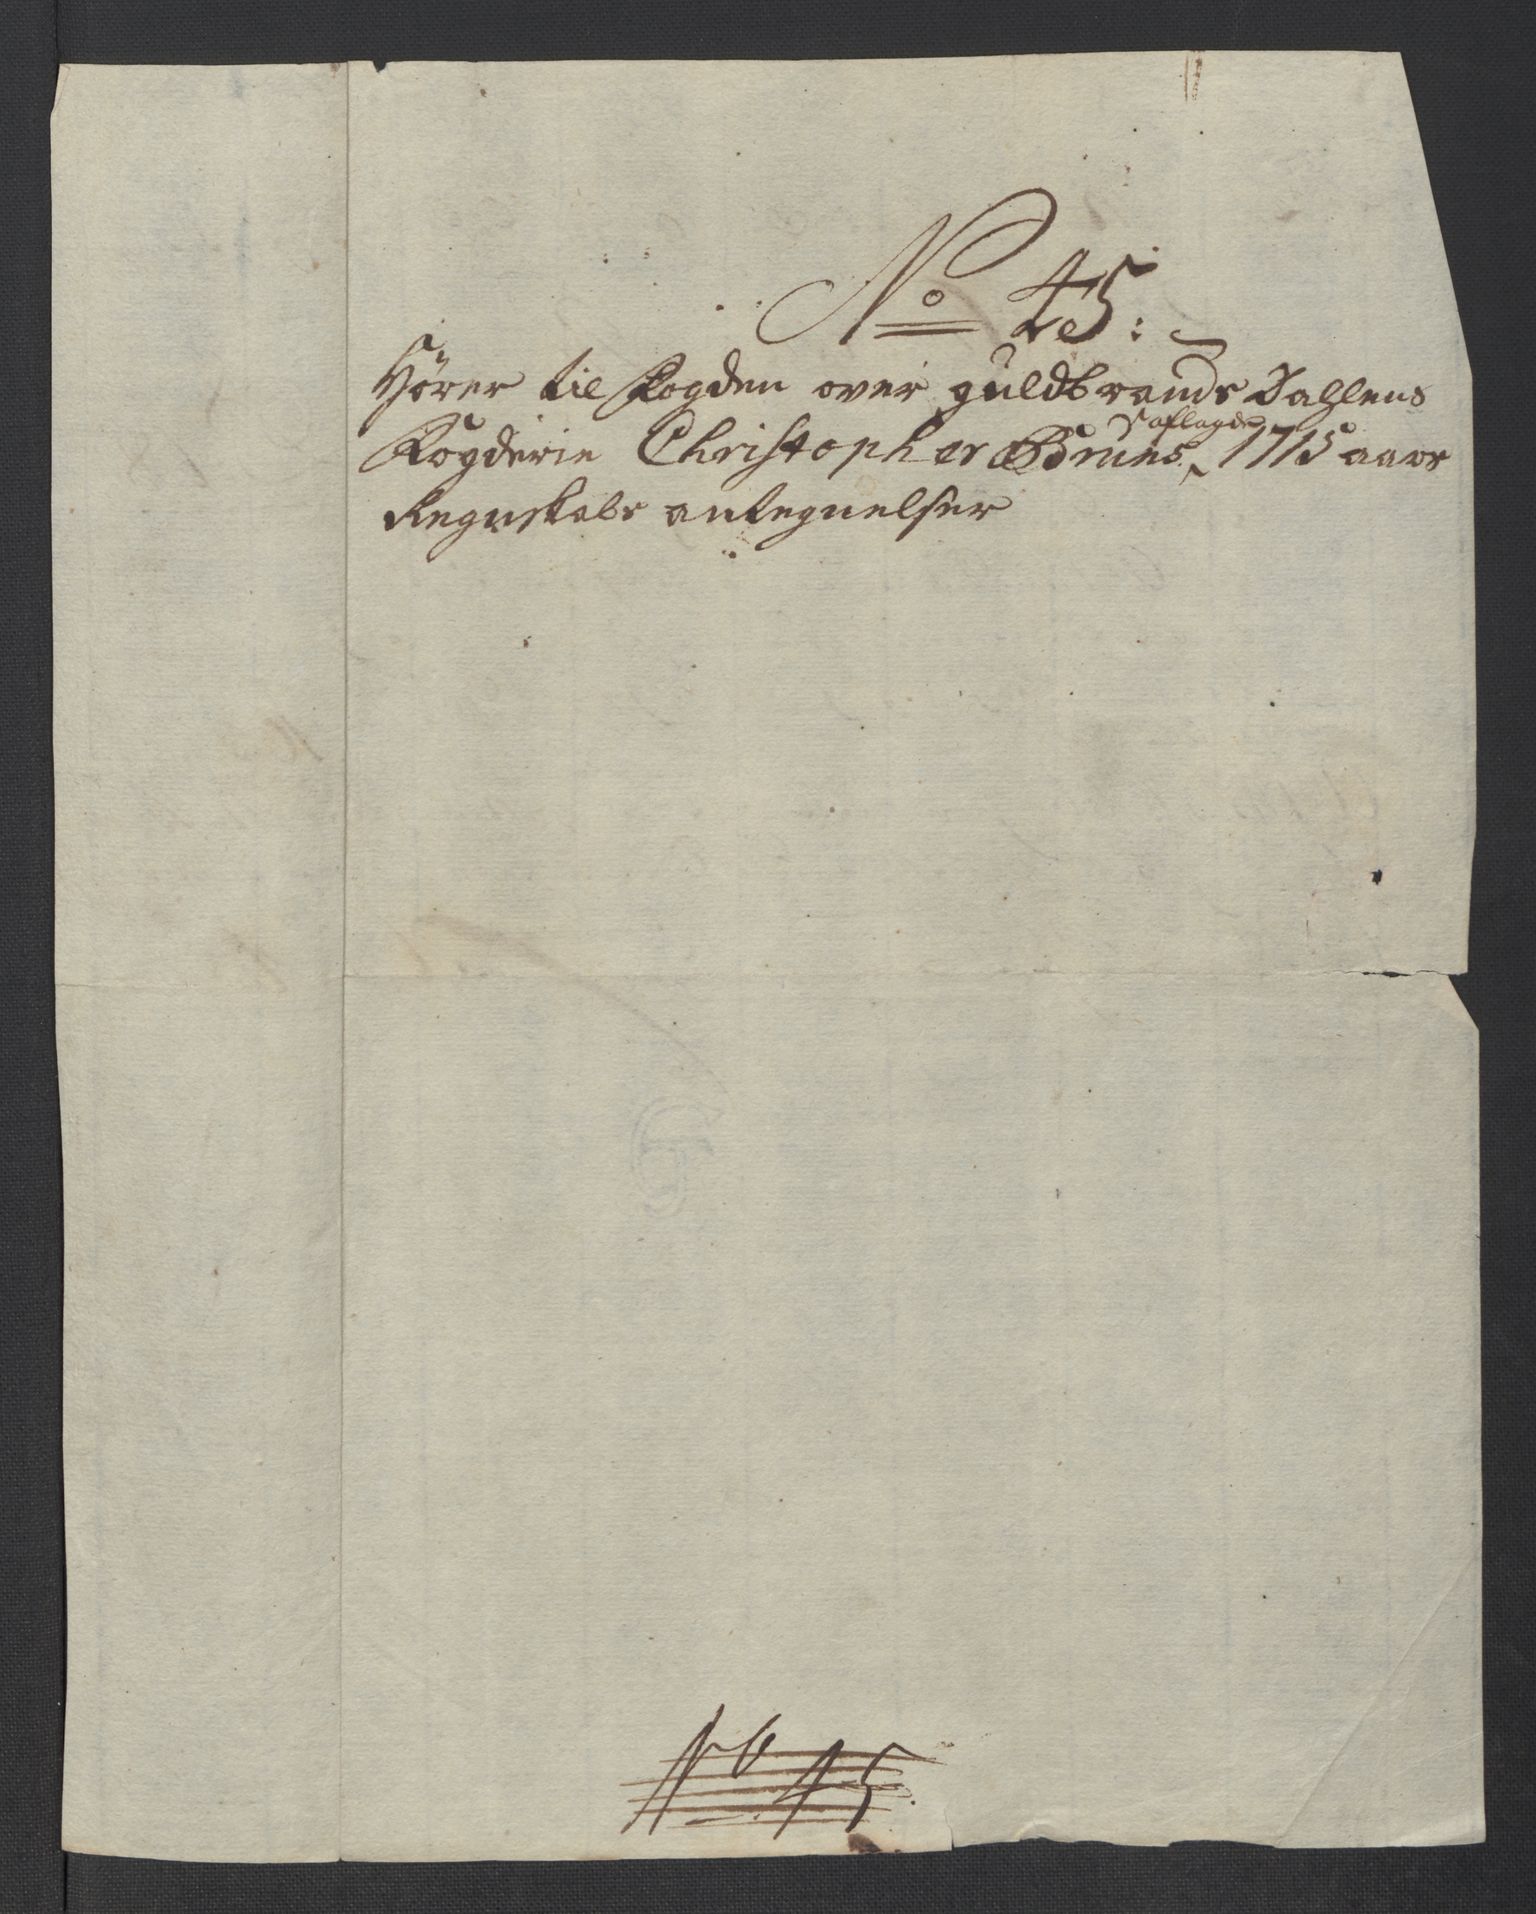 No 45:
Hörer til Fogden over guldbrands Dahlens
Fogderie Christopher Bruns aflagde 1715 aars
Regnskabs antegnelser
No 45.